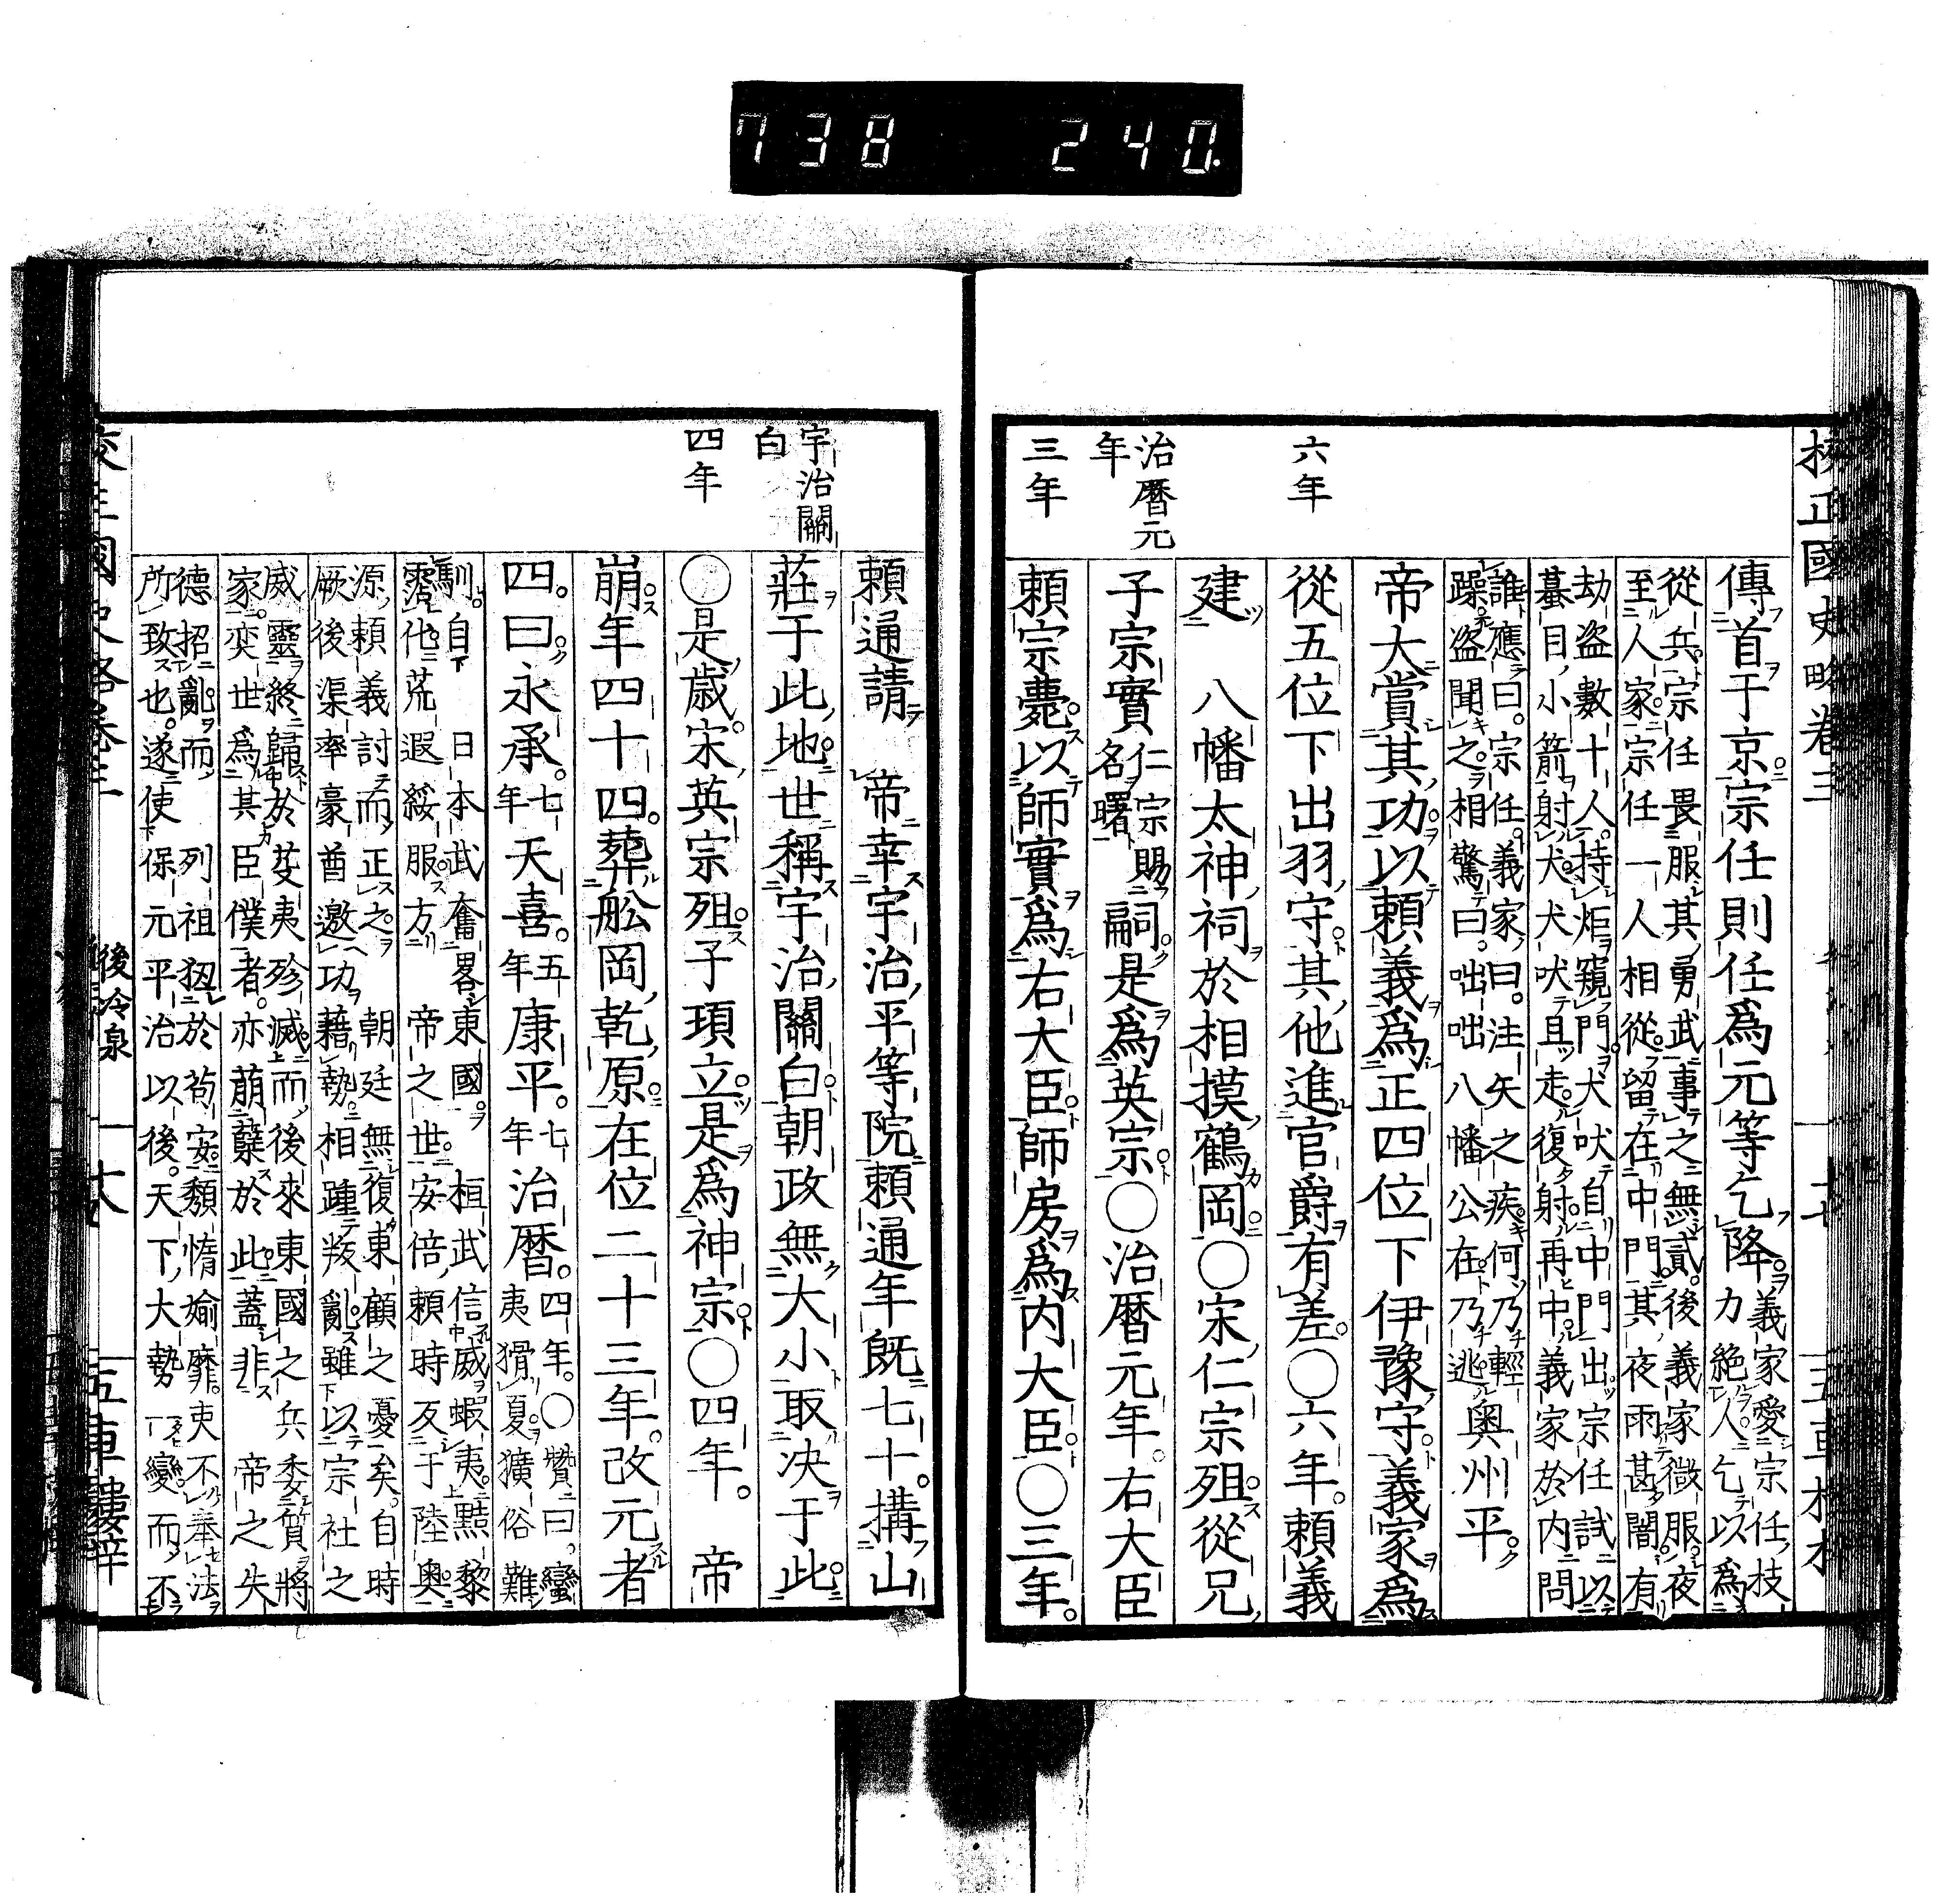 738 240.
校正國史略卷三
傳首于京宗任則任爲元等乞降義家愛宗任枝
力絶人乞以爲
從兵宗任畏服其勇武事之無貳後義家微服夜
至人家宗任一人相從留在中門其夜雨甚闇有
劫盗數十人持炬窺門犬吠自中門出宗任試以
蟇目小箭射犬犬吠且走復射再中義家於内問
誰應曰宗任義家曰注矢之疾何乃輕
躁盗聞之相驚曰咄咄八幡公在乃逃奥州平
六年
帝大賞其功以頼義爲正四位下伊豫守義家爲
從五位下出羽守其他進官爵有差○六年頼義
建 八幡太神祠於相摸鶴岡○宋仁宗殂從兄
治暦元年
子宗實仁宗賜名曙嗣是爲英宗○治暦元年右大臣
三年
頼宗薨以師實爲右大臣師房爲内大臣○三年
頼通請 帝幸宇治平等院頼通年既七十搆山
宇治關白
莊于此地世稱宇治關白朝政無大小取决于此
四年
○是歳宋英宗殂子頊立是爲神宗○四年 帝
崩年四十四葬舩岡乾原在位二十三年改元者
四曰永承七年天喜五年康平七年治暦四年○贊曰蠻
夷猾夏獷俗難
馴自 日本武奮畧東國 桓武信威蝦夷黠黎
霑化荒遐綏服方 帝之世安倍頼時反于陸奥
源頼義討而正之 朝廷無復東顧之憂矣自時
厥後渠率豪酋邀功藉勢相踵叛亂雖以宗社之
威靈終歸於芟夷殄滅而後來東國之兵委質將
家奕世爲其臣僕者亦萠蘖於此蓋非 帝之失
德招亂而 列祖狃於苟安頽惰媮靡吏不奉法
所致也遂使保元平治以後天下大勢一變而不
後冷泉